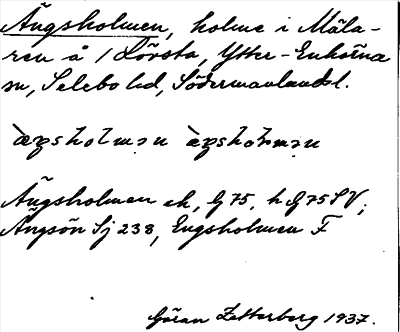 Ängsholmen, holme i Mäla-
ren å 1 Lövsta, Ytter-Enhörna
sn, Selebo hd, Södermanlandsl.
Ängsholmen ek, G 75, h G 75 SV;
Ängsön Sj 238, Engsholmen F
Göran Zetterberg 1937.